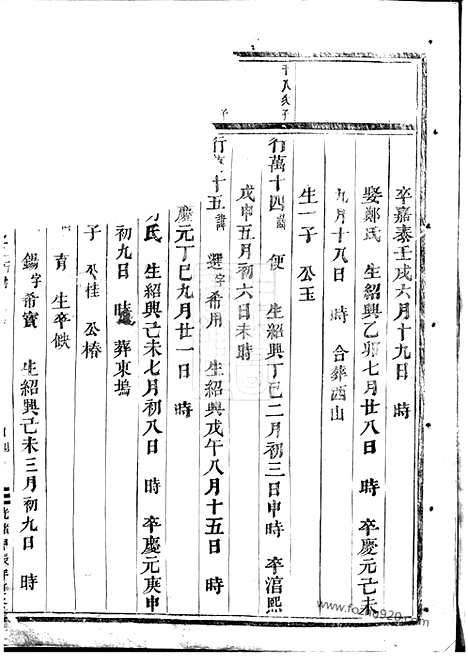 卒嘉泰壬戌六月十九日 時
娶鄭氏 生紹興乙卯七月廿八日 時 卒慶元己未
九月十八日 時 合葬西山
生一子 公玉
行萬十四諱 便 生紹興丁巳二月初三日申時 卒淳熙
戊申五月初六日未時
行 十五諱 選字希用 生紹興戊午八月十五日 時
慶元丁巳九月廿一日 時
氏 生紹興己未七月初八日 時 卒慶元庚申
初九日 時 葬東塢
子 公桂 公椿
育 生卒缺
錫字希寶 生紹興己未三月初九日 時
www.fozhu920.com